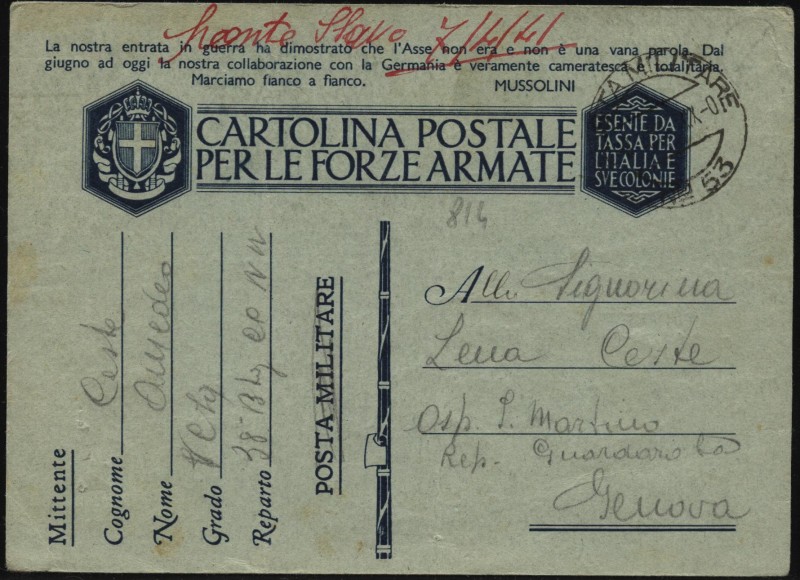 Fronte Slavo 7/4/41
La nostra entrata in guerra ha dimostrato che l'Asse non era e non è una vana parola. Dal
giugno ad oggi la nostra collaborazione con la Germania è veramente cameratesca e totalitaria.
Marciamo fianco a fianco. MUSSOLINI
CARTOLINA POSTALE
PER LE FORZE ARMATE
ESENTE DA
TASSA PER
L'ITALIA E
SVE COLONIE
POSTA MILITARE
Nº 53
814
Mittente
Cognome Ceste
Nome Amedeo
Grado
Reparto 38º Btg
POSTA MILITARE
Alla Signorina
Lena Ceste
Osp. S. Martino
Rep. Guardaroba
Genova